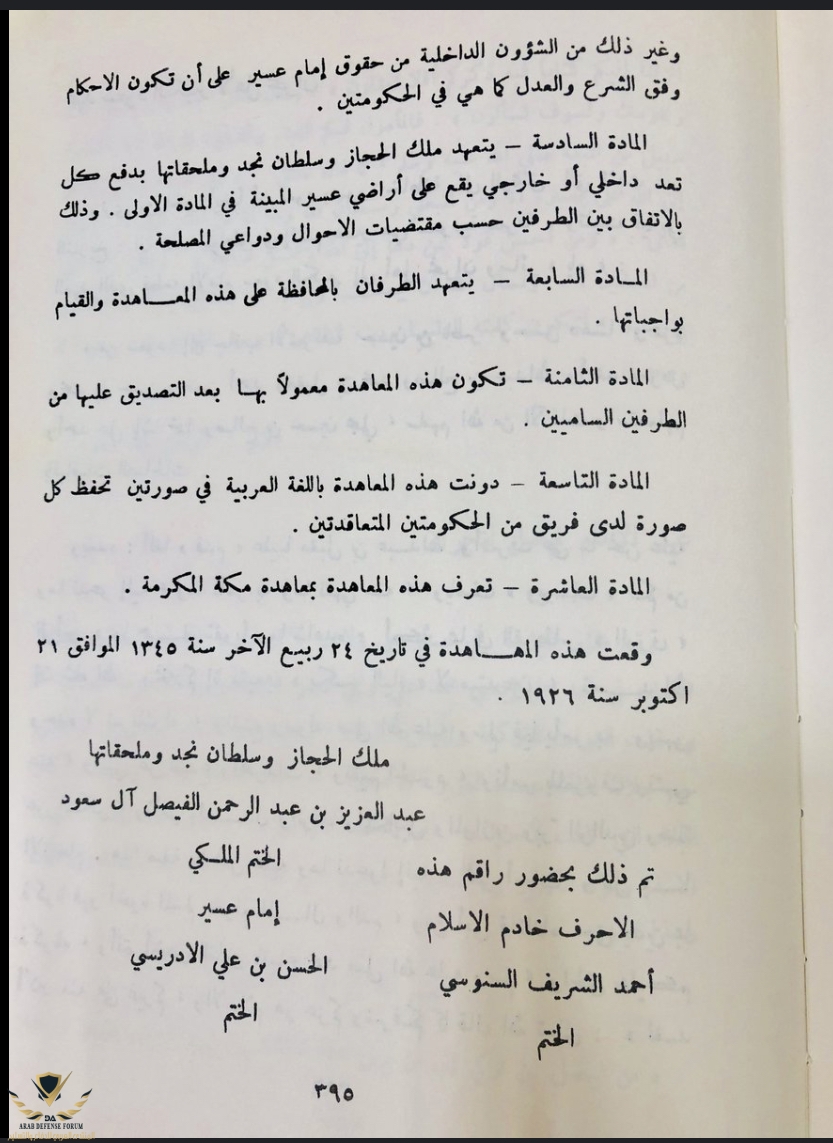 وغير ذلك من الشؤون الداخلية من حقوق إمام عسير على أن تكون الاحكام
وفق الشرع والعدل كما هي في الحكومتين .
المادة السادسة – يتعهد ملك الحجاز وسلطان نجد وملحقاتها بدفع كل
تعد داخلي أو خارجي يقع على أراضي عسير المبينة في المادة الاولى . وذلك
بالاتفاق بين الطرفين حسب مقتضيات الاحوال ودواعي المصلحة .
المادة السابعة – يتعهد الطرفان بالمحافظة على هذه المعاهدة والقيام
بواجباتها .
المادة الثامنة – تكون هذه المعاهدة معمولاً بها بعد التصديق عليها من
الطرفين الساميين .
المادة التاسعة – دونت هذه المعاهدة باللغة العربية في صورتين تحفظ كل
صورة لدى فريق من الحكومتين المتعاقدتين .
المادة العاشرة – تعرف هذه المعاهدة بمعاهدة مكة المكرمة .
وقعت هذه المعاهدة في تاريخ ٢٤ ربيع الآخر سنة ١٣٤٥ الموافق ٢١
اكتوبر سنة ١٩٢٦ .
ملك الحجاز وسلطان نجد وملحقاتها
عبد العزيز بن عبد الرحمن الفيصل آل سعود
الختم الملكي
إمام عسير
الحسن بن علي الادريسي
الختم
تم ذلك بحضور راقم هذه
الاحرف خادم الاسلام
أحمد الشريف السنوسي
الختم
٣٩٥
DA
ARAB DEFENSE FORUM